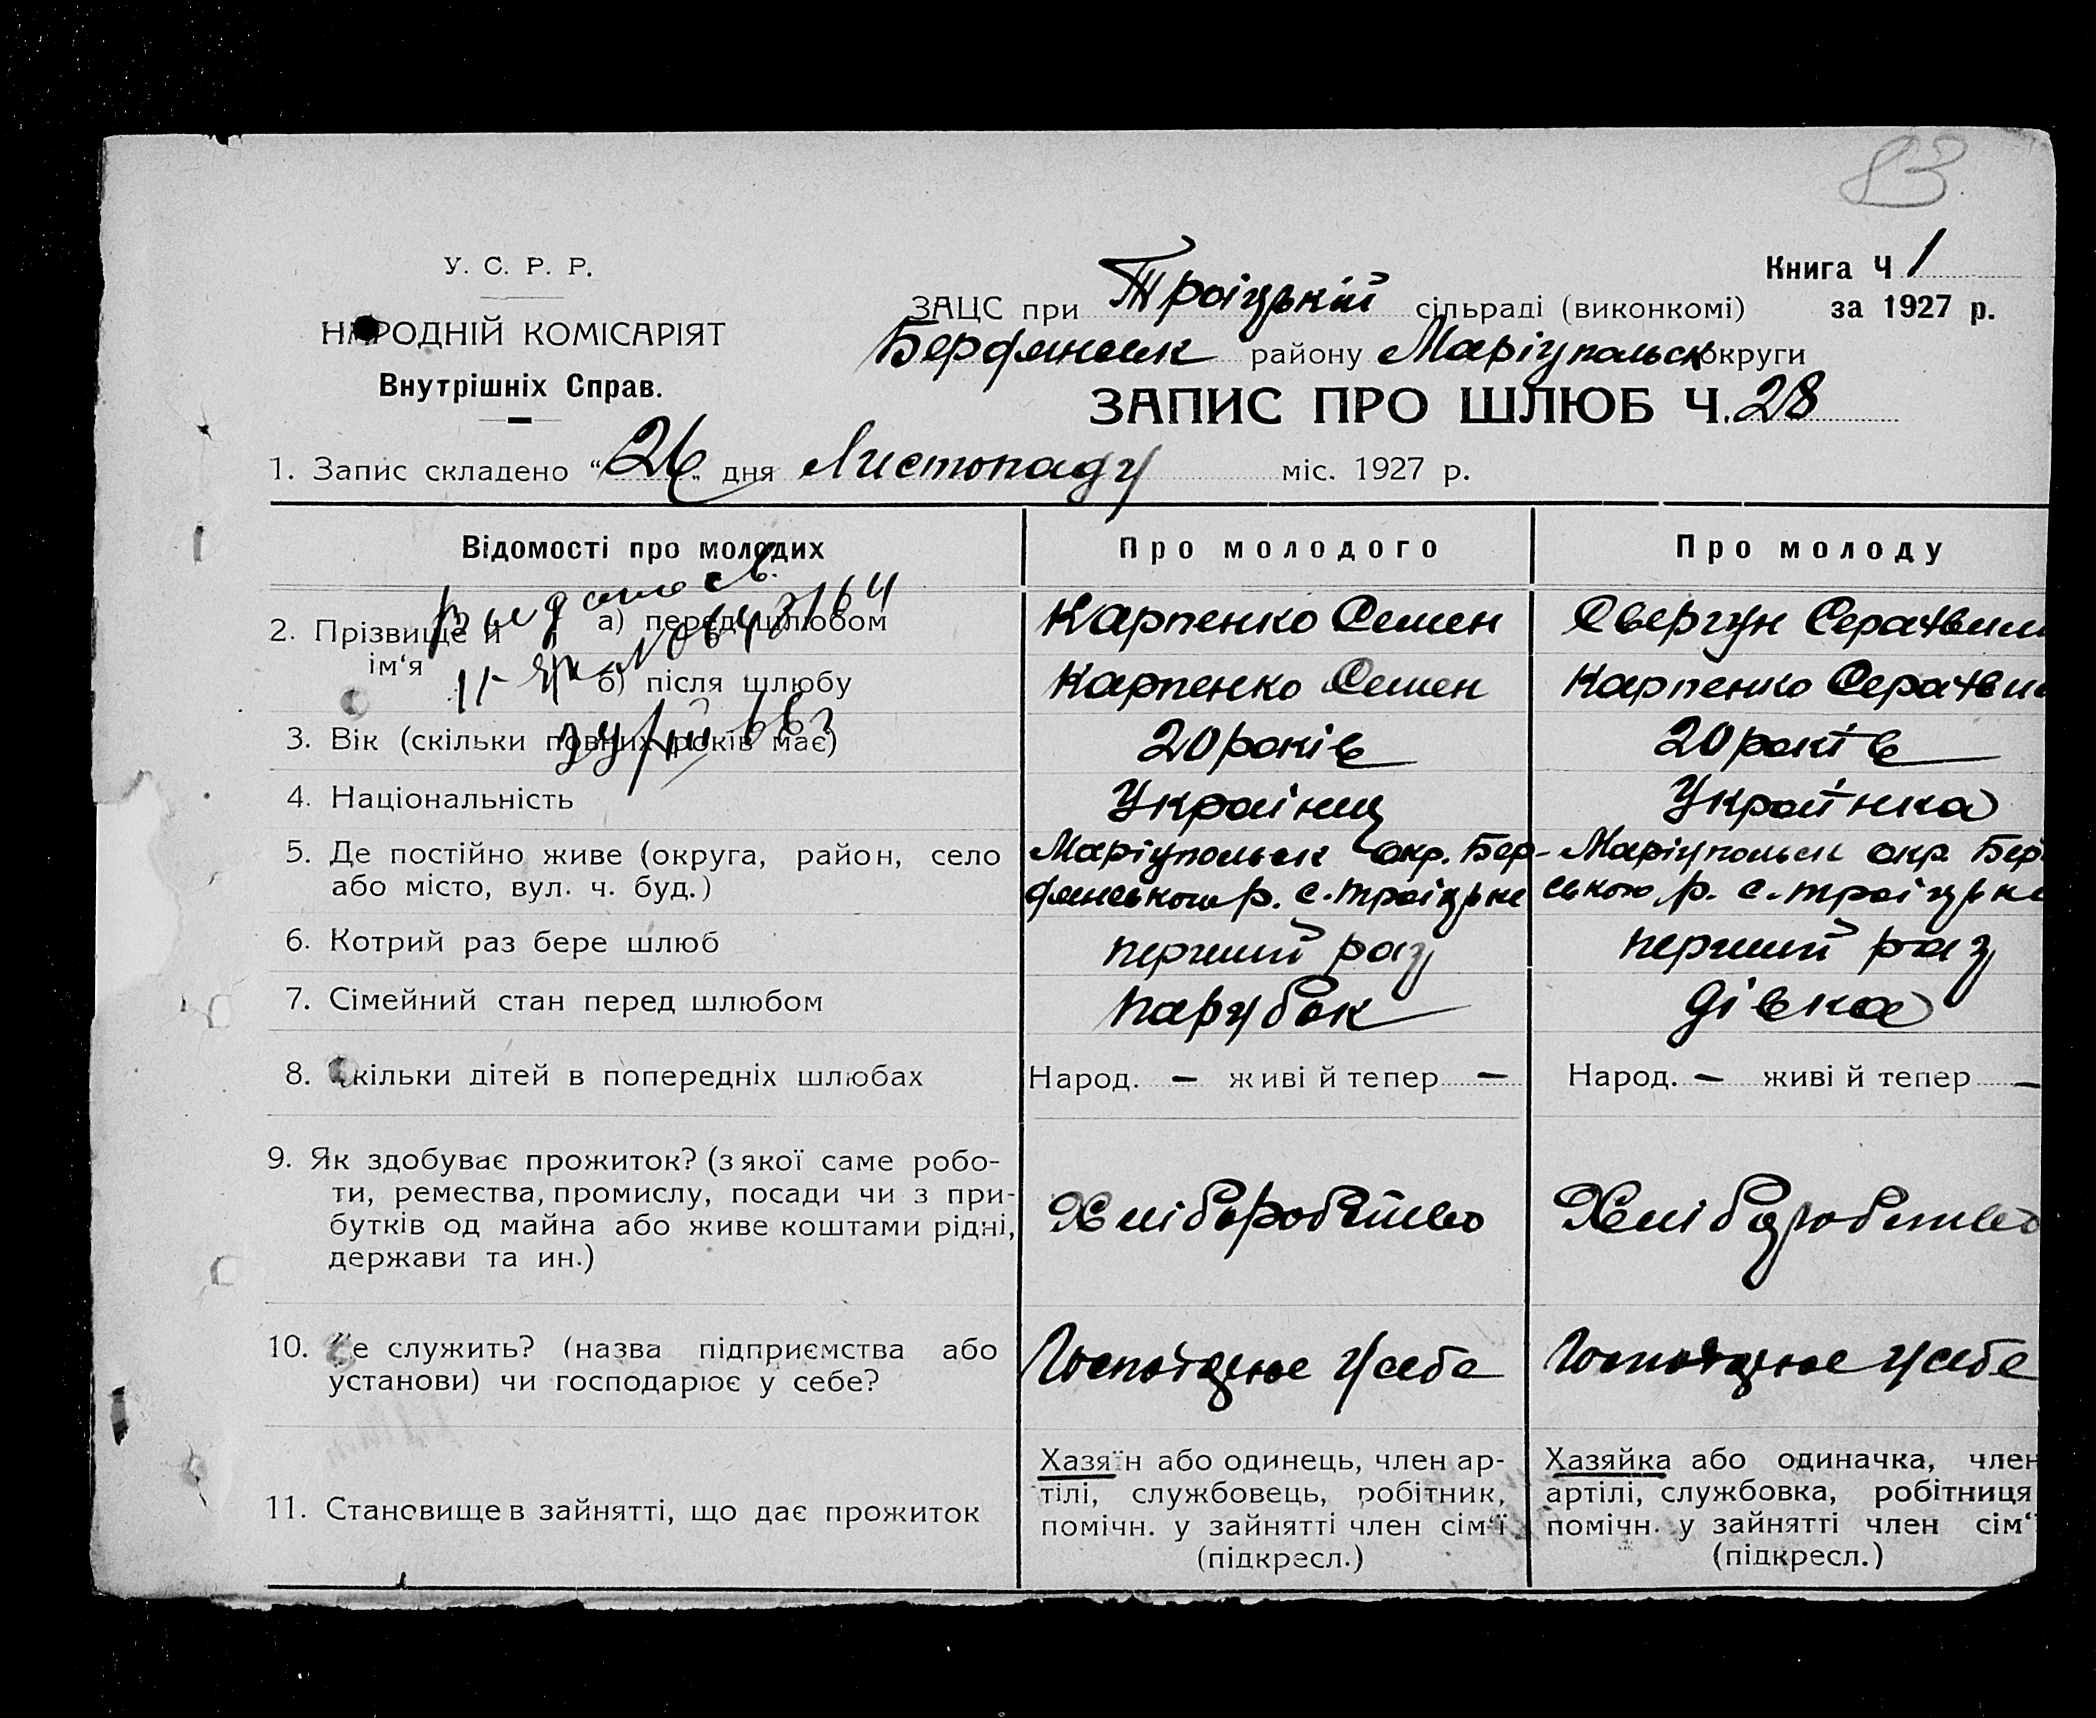 83
У. С. Р. Р.
НАРОДНІЙ КОМІСАРІЯТ
Внутрішніх Справ.
Книга Ч 1
за 1927 р.
ЗАЦС при Троіцькій сільраді (виконкомі)
Бердянськ району Маріупольск округи
ЗАПИС ПРО ШЛЮБ Ч. 28
1. Запис складено “26„ дня Листопаду міс. 1927 р.
Відомості про молодих
Про молодого
Про молоду
2. Прізвище й ім‘я
а) перед шлюбом
Карпенко Семен
Свергун
б) після шлюбу
Карпенко Семен
Карпенко
3. Вік (скільки повних років має)
20 років
20 років
4. Національність
Украінец
Українка
5. Де постійно живе (округа, район, село
або місто, вул. ч. буд.)
Маріупольск окр. Бер-
дянського р. с. Троіцьке
Маріупольск окр. Бер
ського р. с. Троіцьке
6. Котрий раз бере шлюб
перший раз
перший раз
7. Сімейний стан перед шлюбом
парубок
дівка
8. Скільки дітей в попередніх шлюбах
Народ. — живі й тепер —
Народ. — живі й тепер —
9. Як здобуває прожиток? (з якої саме робо-
ти, ремества, промислу, посади чи з при-
бутків од майна або живе коштами рідні,
держави та ин.)
Хліборобство
Хліборобство
10. Де служить? (назва підприємства або
установи) чи господарює у себе?
у себе
у себе
11. Становище в зайнятті, що дає прожиток
Хазяїн або одинець, член ар-
тілі, службовець, робітник,
помічн. у зайнятті член сім‘ї
(підкресл.)
Хазяйка або одиначка, член
артілі, службовка, робітниця
помічн. у зайнятті член сім‘
(підкресл.)